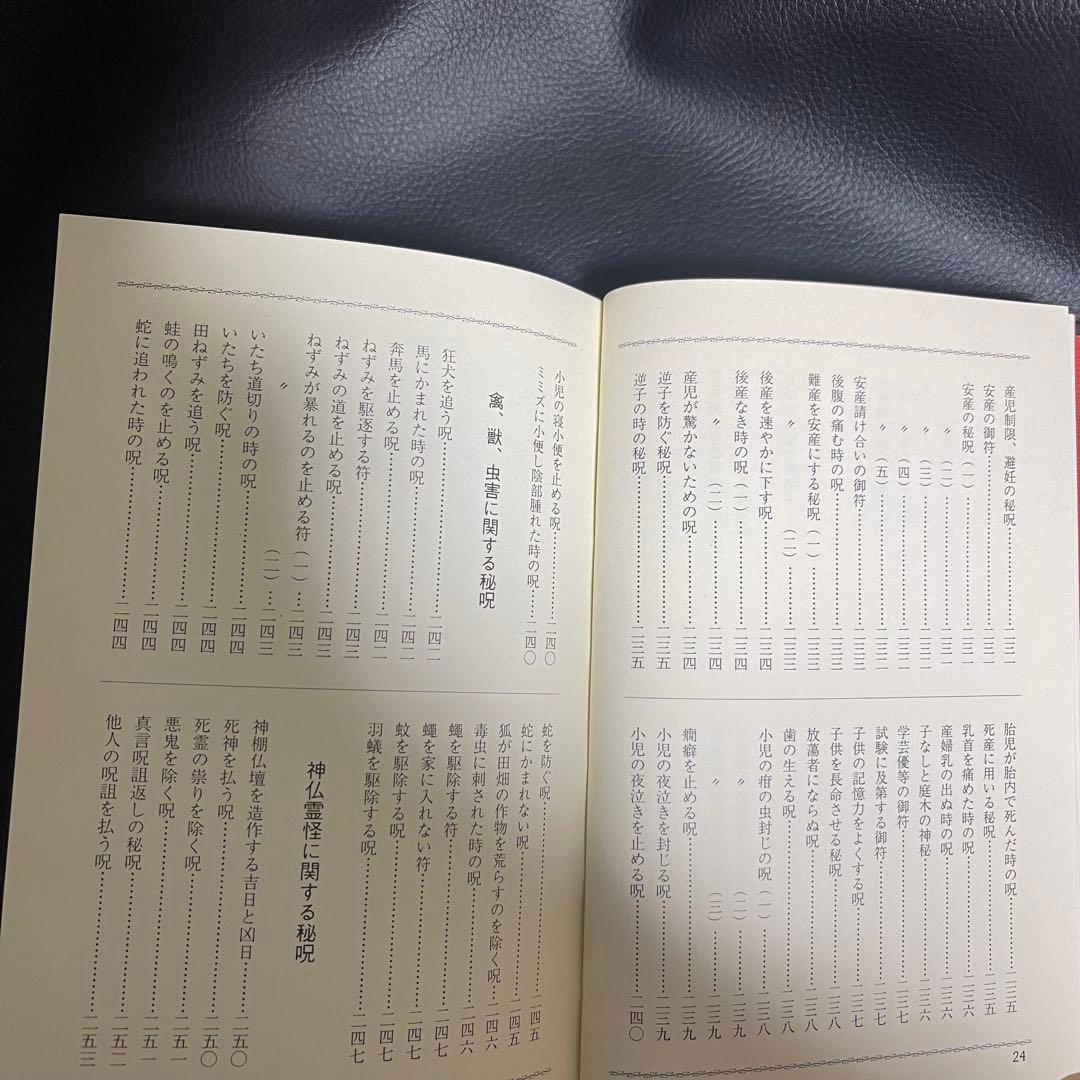 産児制限、避妊の秘呪……二三一
安産の御符……二三一
安産の秘呪（一）……二三一
〃（二）……二三二
〃（三）……二三二
〃（四）……二三二
〃（五）……二三二
安産請け合いの御符……二三三
後腹の痛む時の呪……二三三
難産を安産にする秘呪（一）……二三三
〃（二）……二三三
後産を速やかに下す呪……二三四
後産なき時の呪（一）……二三四
〃（二）……二三四
産児が驚かないための呪……二三四
逆子を防ぐ秘呪……二三五
逆子の時の秘呪……二三五
胎児が胎内で死んだ時の呪……二三五
死産に用いる秘呪……二三五
乳首を痛めた時の呪……二三六
産婦乳の出ぬ時の呪……二三六
子なしと庭木の神秘……二三六
学芸優等の御符……二三七
試験に及第する御符……二三七
子供の記憶力をよくする呪……二三七
子供を長命させる秘呪……二三八
放蕩者にならぬ呪……二三八
歯の生える呪……二三八
小児の疳の虫封じの呪（一）……二三八
〃（二）……二三九
〃（三）……二三九
癇癖を止める呪……二三九
小児の夜泣きを封じる呪……二三九
小児の夜泣きを止める呪……二四〇
24
小児の寝小便を止める呪……二四〇
ミミズに小便し陰部腫れた時の呪……二四〇
禽、獣、虫害に関する秘呪
狂犬を追う呪……二四二
馬にかまれた時の呪……二四二
奔馬を止める呪……二四二
ねずみを駆逐する符……二四三
ねずみの道を止める呪……二四三
ねずみが暴れるのを止める符（一）……二四三
〃（二）……二四三
いたち道切りの時の呪……二四四
いたちを防ぐ呪……二四四
田ねずみを追う呪……二四四
蛙の鳴くのを止める呪……二四四
蛇に追われた時の呪……二四四
蛇を防ぐ呪……二四五
蛇にかまれない呪……二四五
狐が田畑の作物を荒らすのを除く呪……二四六
毒虫に刺された時の呪……二四六
蠅を駆除する符……二四六
蠅を家に入れない符……二四七
蚊を駆除する呪……二四七
羽蟻を駆除する呪……二四七
神仏霊怪に関する秘呪
神棚仏壇を造作する吉日と凶日……二五〇
死神を払う呪……二五〇
死霊の祟りを除く呪……二五一
悪鬼を除く呪……二五一
真言呪詛返しの秘呪……二五二
他人の呪詛を払う呪……二五三